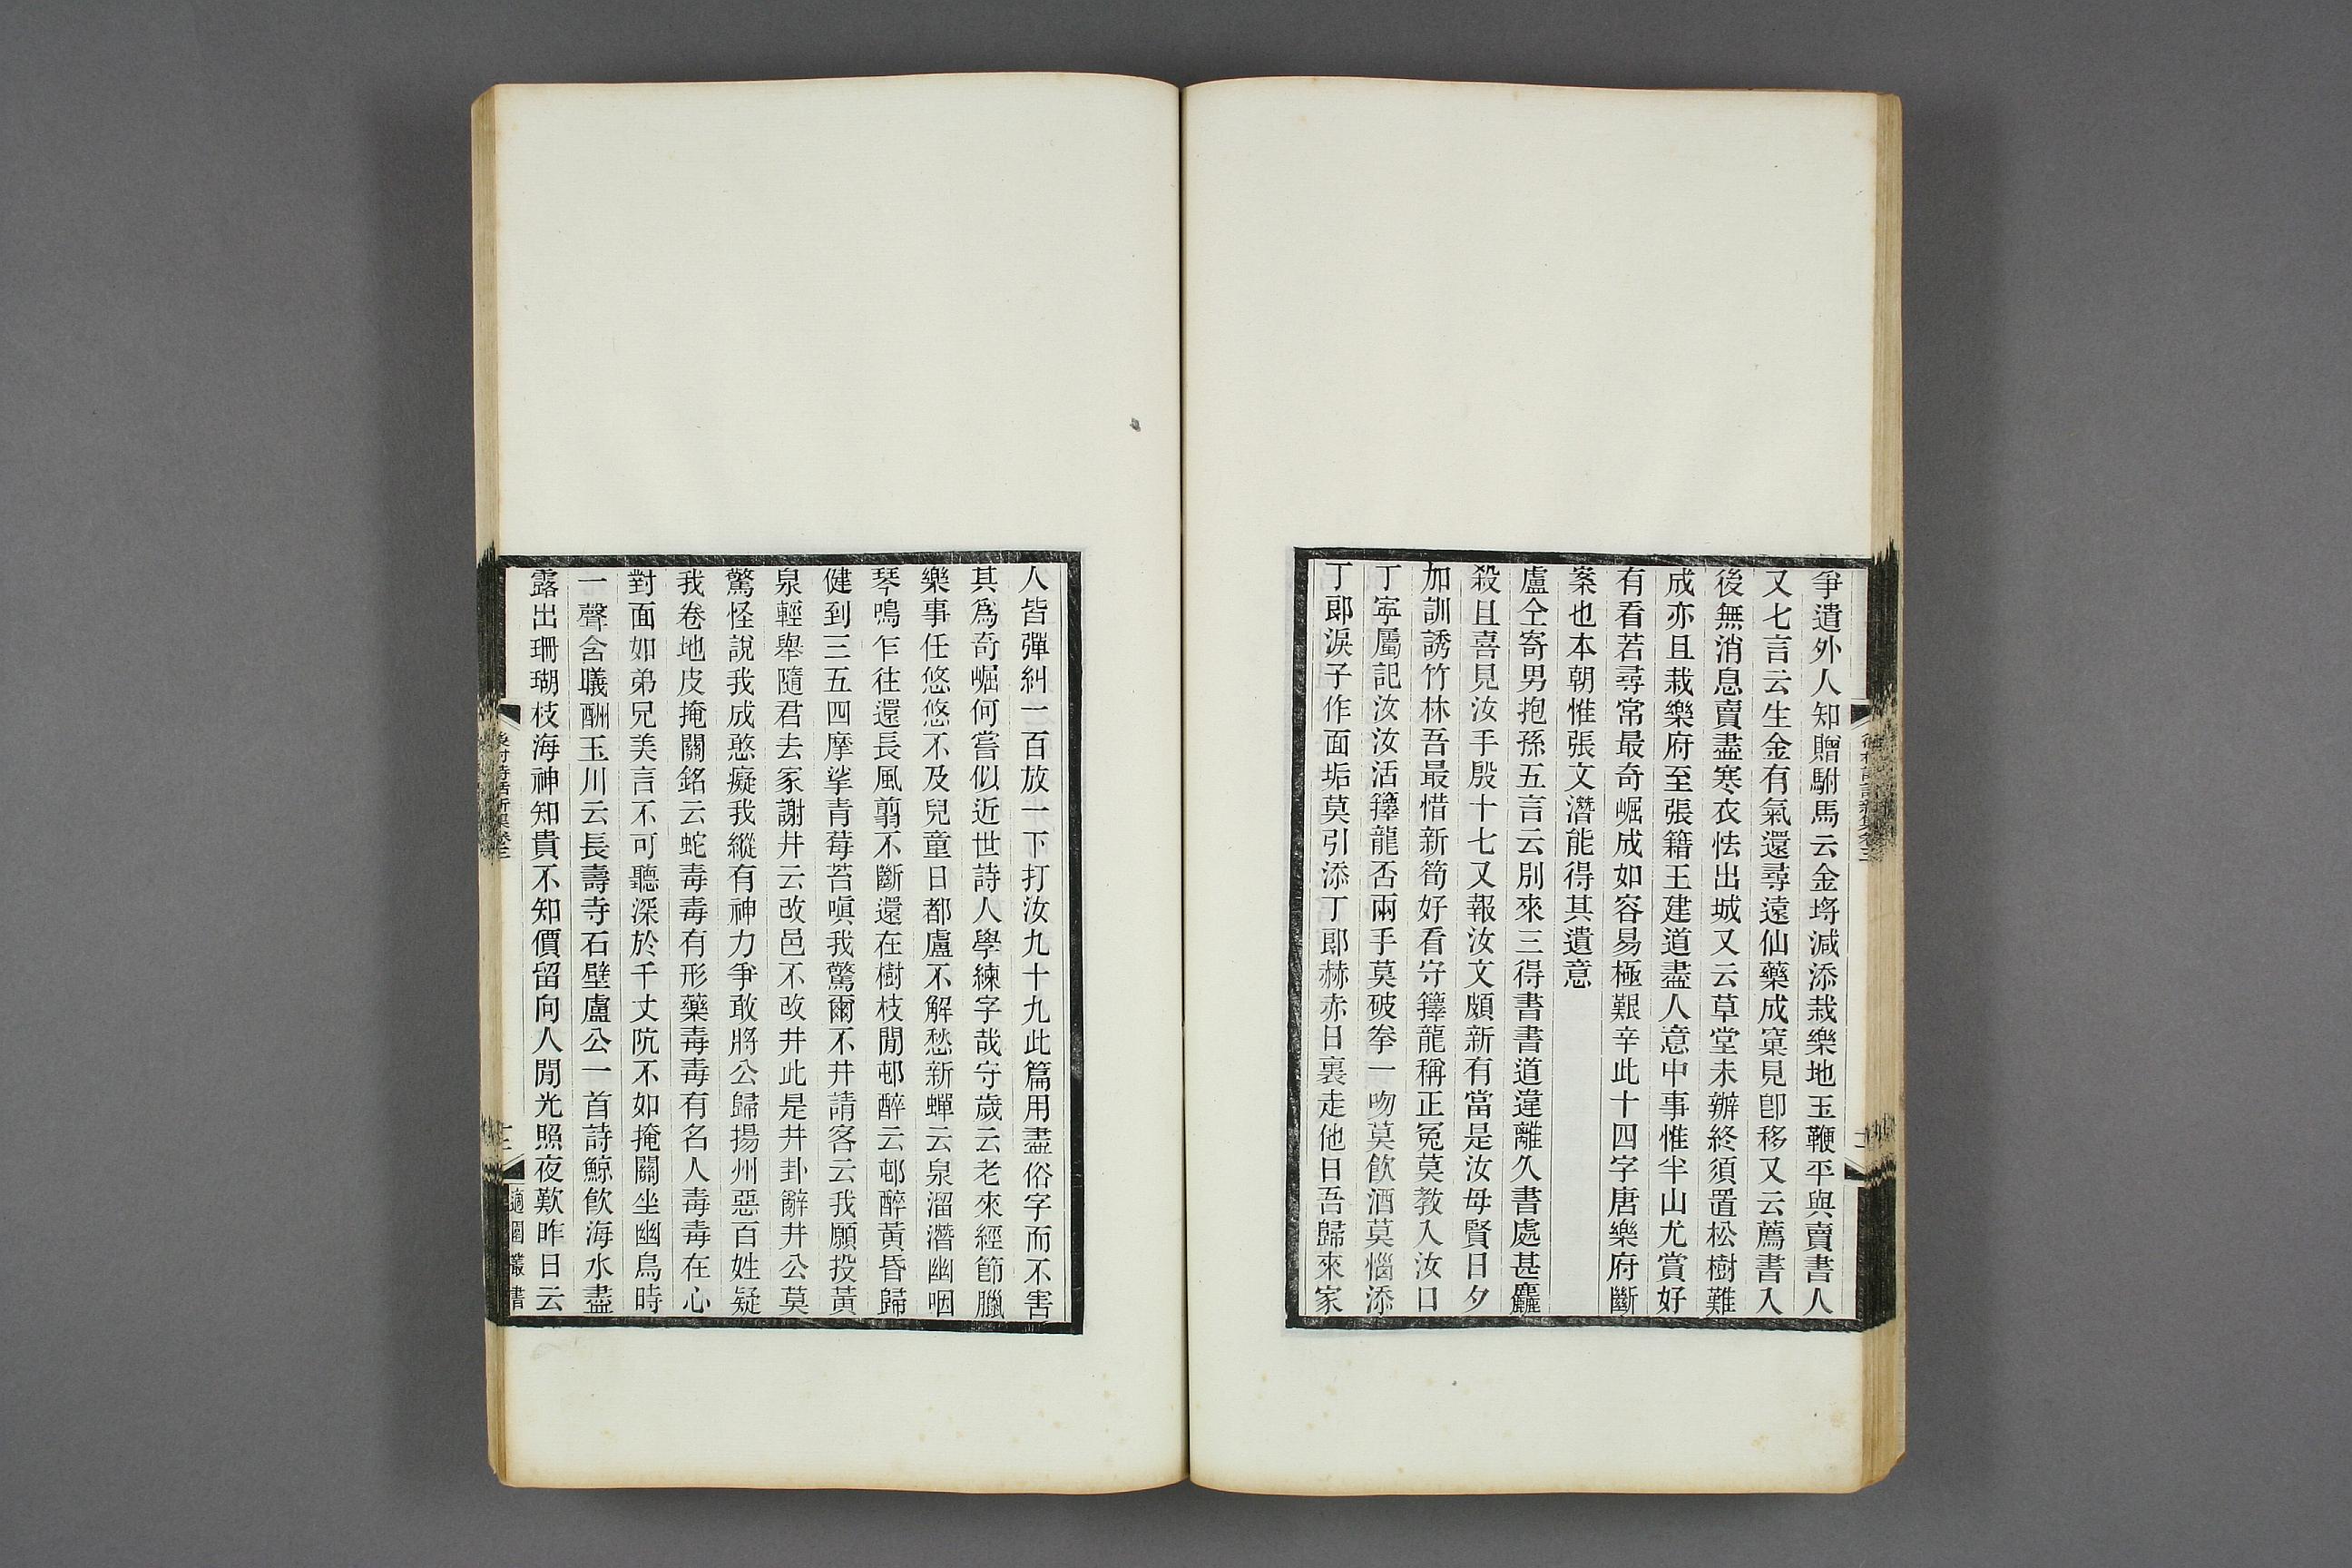 爭遣外人知贈駙馬云金埓減添栽樂地玉鞭平與賣書人
又七言云生金有氣還尋遠仙藥成窠見卽移又云薦書入
後無消息賣盡寒衣怯出城又云草堂未辦終須置松樹難
成亦且栽樂府至張籍王建道盡人意中事惟半山尤賞好
有看若尋常最奇崛成如容易極艱辛此十四字唐樂府斷
案也本朝惟張文潛能得其遺意
盧仝寄男抱孫五言云別來三得書書道違離久書處甚麤
殺且喜見汝手殷十七又報汝文頗新有當是汝母賢日夕
加訓誘竹林吾最惜新筍好看守籜龍稱正冤莫教入汝口
丁寧屬記汝汝活籜龍否兩手莫破拳一吻莫飲酒莫惱添
丁郎淚子作面垢莫引添丁郎赫赤日裏走他日吾歸來家
後村詩話新集卷三
人皆彈糾一百放一下打汝九十九此篇用盡俗字而不害
其爲奇崛何嘗似近世詩人學練字哉守歲云老來經節臘
樂事任悠悠不及兒童日都盧不解愁新蟬云泉溜潛幽咽
琴鳴乍往還長風翦不斷還在樹枝閒邨醉云邨醉黃昏歸
健到三五四摩挲青莓苔嗔我驚爾不井請客云我願投黃
泉輕舉隨君去家謝井云改邑不改井此是井卦辭井公莫
驚怪說我成憨癡我縱有神力爭敢將公歸揚州惡百姓疑
我卷地皮掩關銘云蛇毒毒有形藥毒毒有名人毒毒在心
對面如弟兄美言不可聽深於千丈阬不如掩關坐幽鳥時
一聲含曦酬玉川云長壽寺石壁盧公一首詩鯨飮海水盡
露出珊瑚枝海神知貴不知價留向人閒光照夜歎昨日云
後村詩話新集卷三
十二
適園叢書